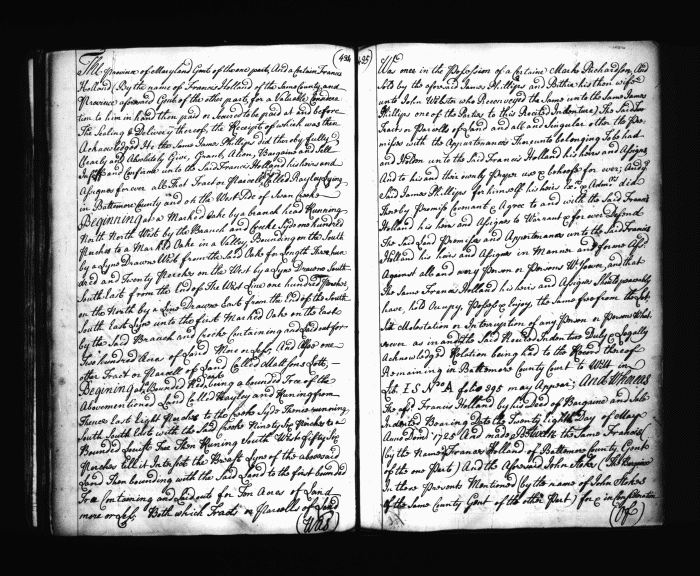 434
The Province of Maryland Gent of the one part, And a Certain Francis
Holland (By the name of Francis Holland of the Same County and
Province aforesaid Gent of the other part, for a Valuable Considera
tion to him in hand then paid or Secured to be paid at and before
the Sealing & Delivery thereof, the Receipt of which was then
Acknowledged He the Same James Phillips did thereby fully
Clearly and Absolutely Give, Grant, Alien, Bargain and Sell
Infeoff and Confirm unto the Said Francis Holland his heirs and
Assignes for ever all That Tract or Parcell Called Lying
in Baltemore County and on the West Side of Swan Creek
Beginning at a Marked Oake by a branch head Running
North North West by the Branch and Creeke Side one hundred
Perches to a Marked Oake in a Valley, Bounding on the South
by a Lyne Drawne West from the Said Oake for Length Three hun
dred and Twenty Perches on the West by a Lyne Drawne South
South East from the End of the West Line one hundred Perches
on the North by a Lyne Drawne East from the End of the South
South East Lyne unto the first Marked Oake on the East
by the Said Branch and Creeke Containing and Laid out for
Two hundred Acres of Land More or Less, And Also one
other Tract or Parcell of Land Called Lott,
Begining at a Bounded Red Oak being a bounded Tree of the
Abovementioned Land Called and Runing from
Thence East Eight Perches to the Creeke Side Thence running
South South East with the Said Creek Ninety Six Perches to a
Bounded Tree Then Runing South West fifty Six
Perches till it Intersects the Lyne of the aforesaid
Land Then bounding with the Said Land to the first bounded
Tree Containing and Laid out for Ten Acres of Land
more or Less. Both which Tracts or Parcells of Land
(Was)
435
Was once in the Possession of a Certaine Marke Richardson, And
Sold by the aforesaid James Phillips and Bethia his then wife
unto John Webster who Reconveyed the Same unto the Same James
Phillips one of the Parties to this Recited Indenture) The Said Two
Tracts or Parcells of Land and all and Singular other the Pre
misses with the Appurtenances Thereunto belonging To be had
and Holden unto the Said Francis Holland his heirs and Assignes
And to his and their only Proper use & behoofe for ever; And ye
Said James Phillips for himself his heirs Exrs & Admrs did
thereby Promise Covenant & Agree to and with the Said Francis
Holland his heirs and Assignes to Warrant & for ever Defend
The Said Land Premisses and Appurtenances unto the Said Francis
Holland his heirs and Assigns in Manner and forme Afsd
Against all and every Person or Persons and that
The Same Francis Holland his heirs and Assignes Should peaceably
have, hold Occupy, Possess & Enjoy, the Same free from the Let
Suit Molestation or Interruption of any Person or Persons What
soever as in and the Said Recited Indenture Duly & Legally
Acknowledged Relation being had to the Record thereof
Remaining in Baltemore County Court to Witt in
Lib I S No A folio 395 may Appear; And Whereas
The afsd Francis Holland by his Deed of Bargaine and Sale
Indented Bearing Date the Twenty Eighth Day of May
Anno Domi 1725 And made Between the Same Francis
(by the Name of Francis Holland of Baltemore County Gent
of the one Part) And the Aforesaid John Stokes (
In these Presents Mentioned (by the name of John Stokes
of the Same County Gent of the other Part) for & in Consideration
(Of)